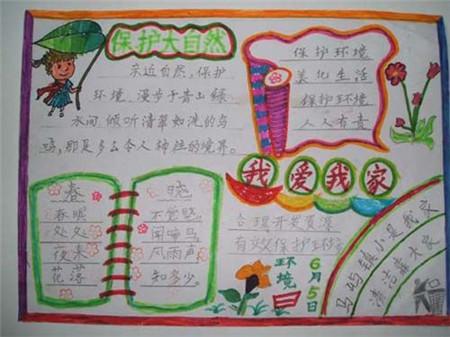 保护大自然
亲近自然,保护
环境。漫步于青山绿
水间,倾听清翠如洗的鸟
鸣,那是多么令人神往的境界。
保护环境
美化生活
保护环境
人人有责
我爱我家
春晓
春眠不觉晓。
处处闻啼鸟。
夜来风雨声
花落知多少。
合理开发资源
有效保护环境
环境日
6月5日
镇小是我家
清洁靠大家